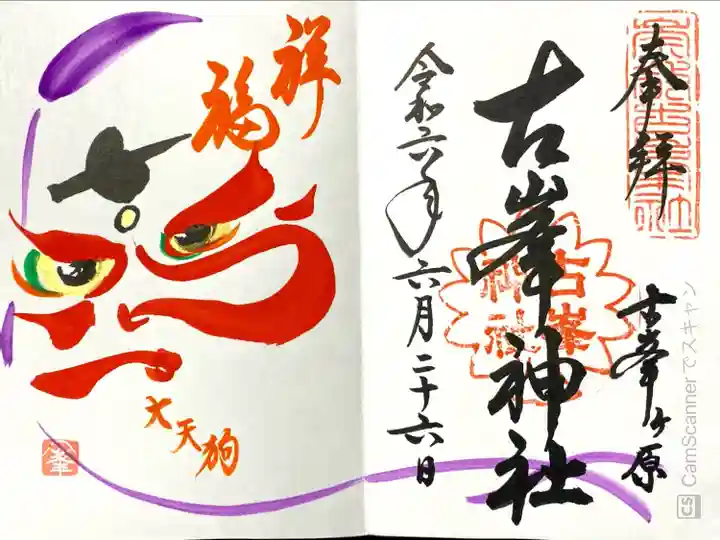 奉拝
古峯ヶ原
古峯神社
古峯神社
令和六年六月二十六日
祥福
大天狗
峯
CamScannerでスキャン
CS